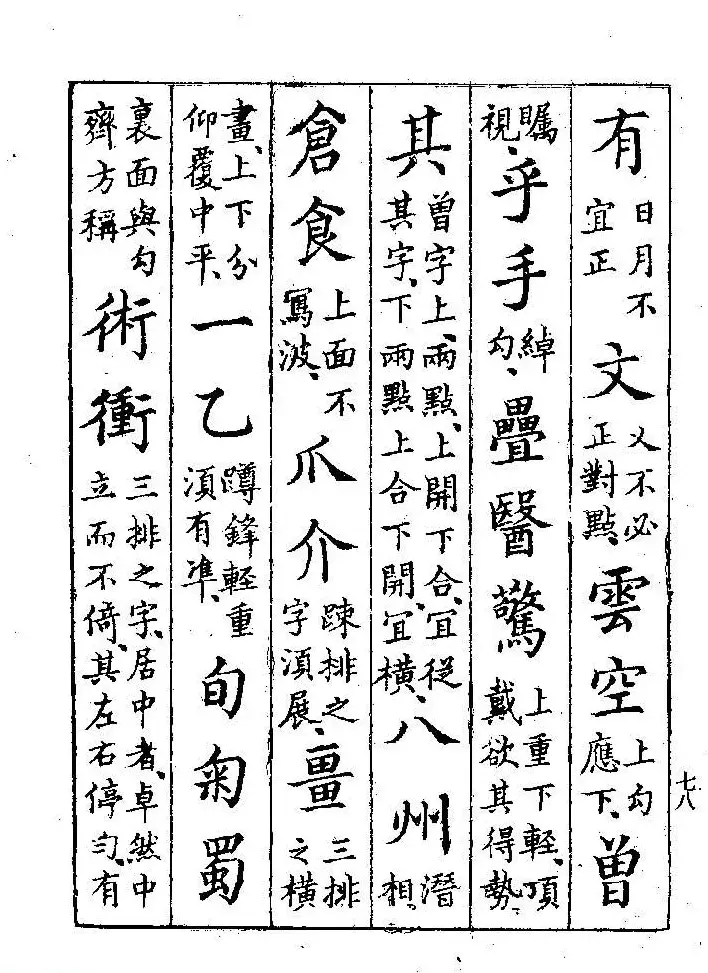 有日月不宜正文乂不必正對點、雲空上勾應下、曾
矚視、乎手綽勾、疊醫驚上重下輕、頂戴欲其得勢、
其曾字上、兩點、上開下合、宜從其字、下兩點上合下開、宜橫、八州潛相、
倉食上面不寫波、爪介踈排之字須展、畺三排之橫
畫、上下分仰覆中平、一乙蹲鋒輕重須有凖、旬匊蜀
裏面與勾齊方稱術衝三排之字、居中者、卓然中立而不倚、其左右停勻、有
七八